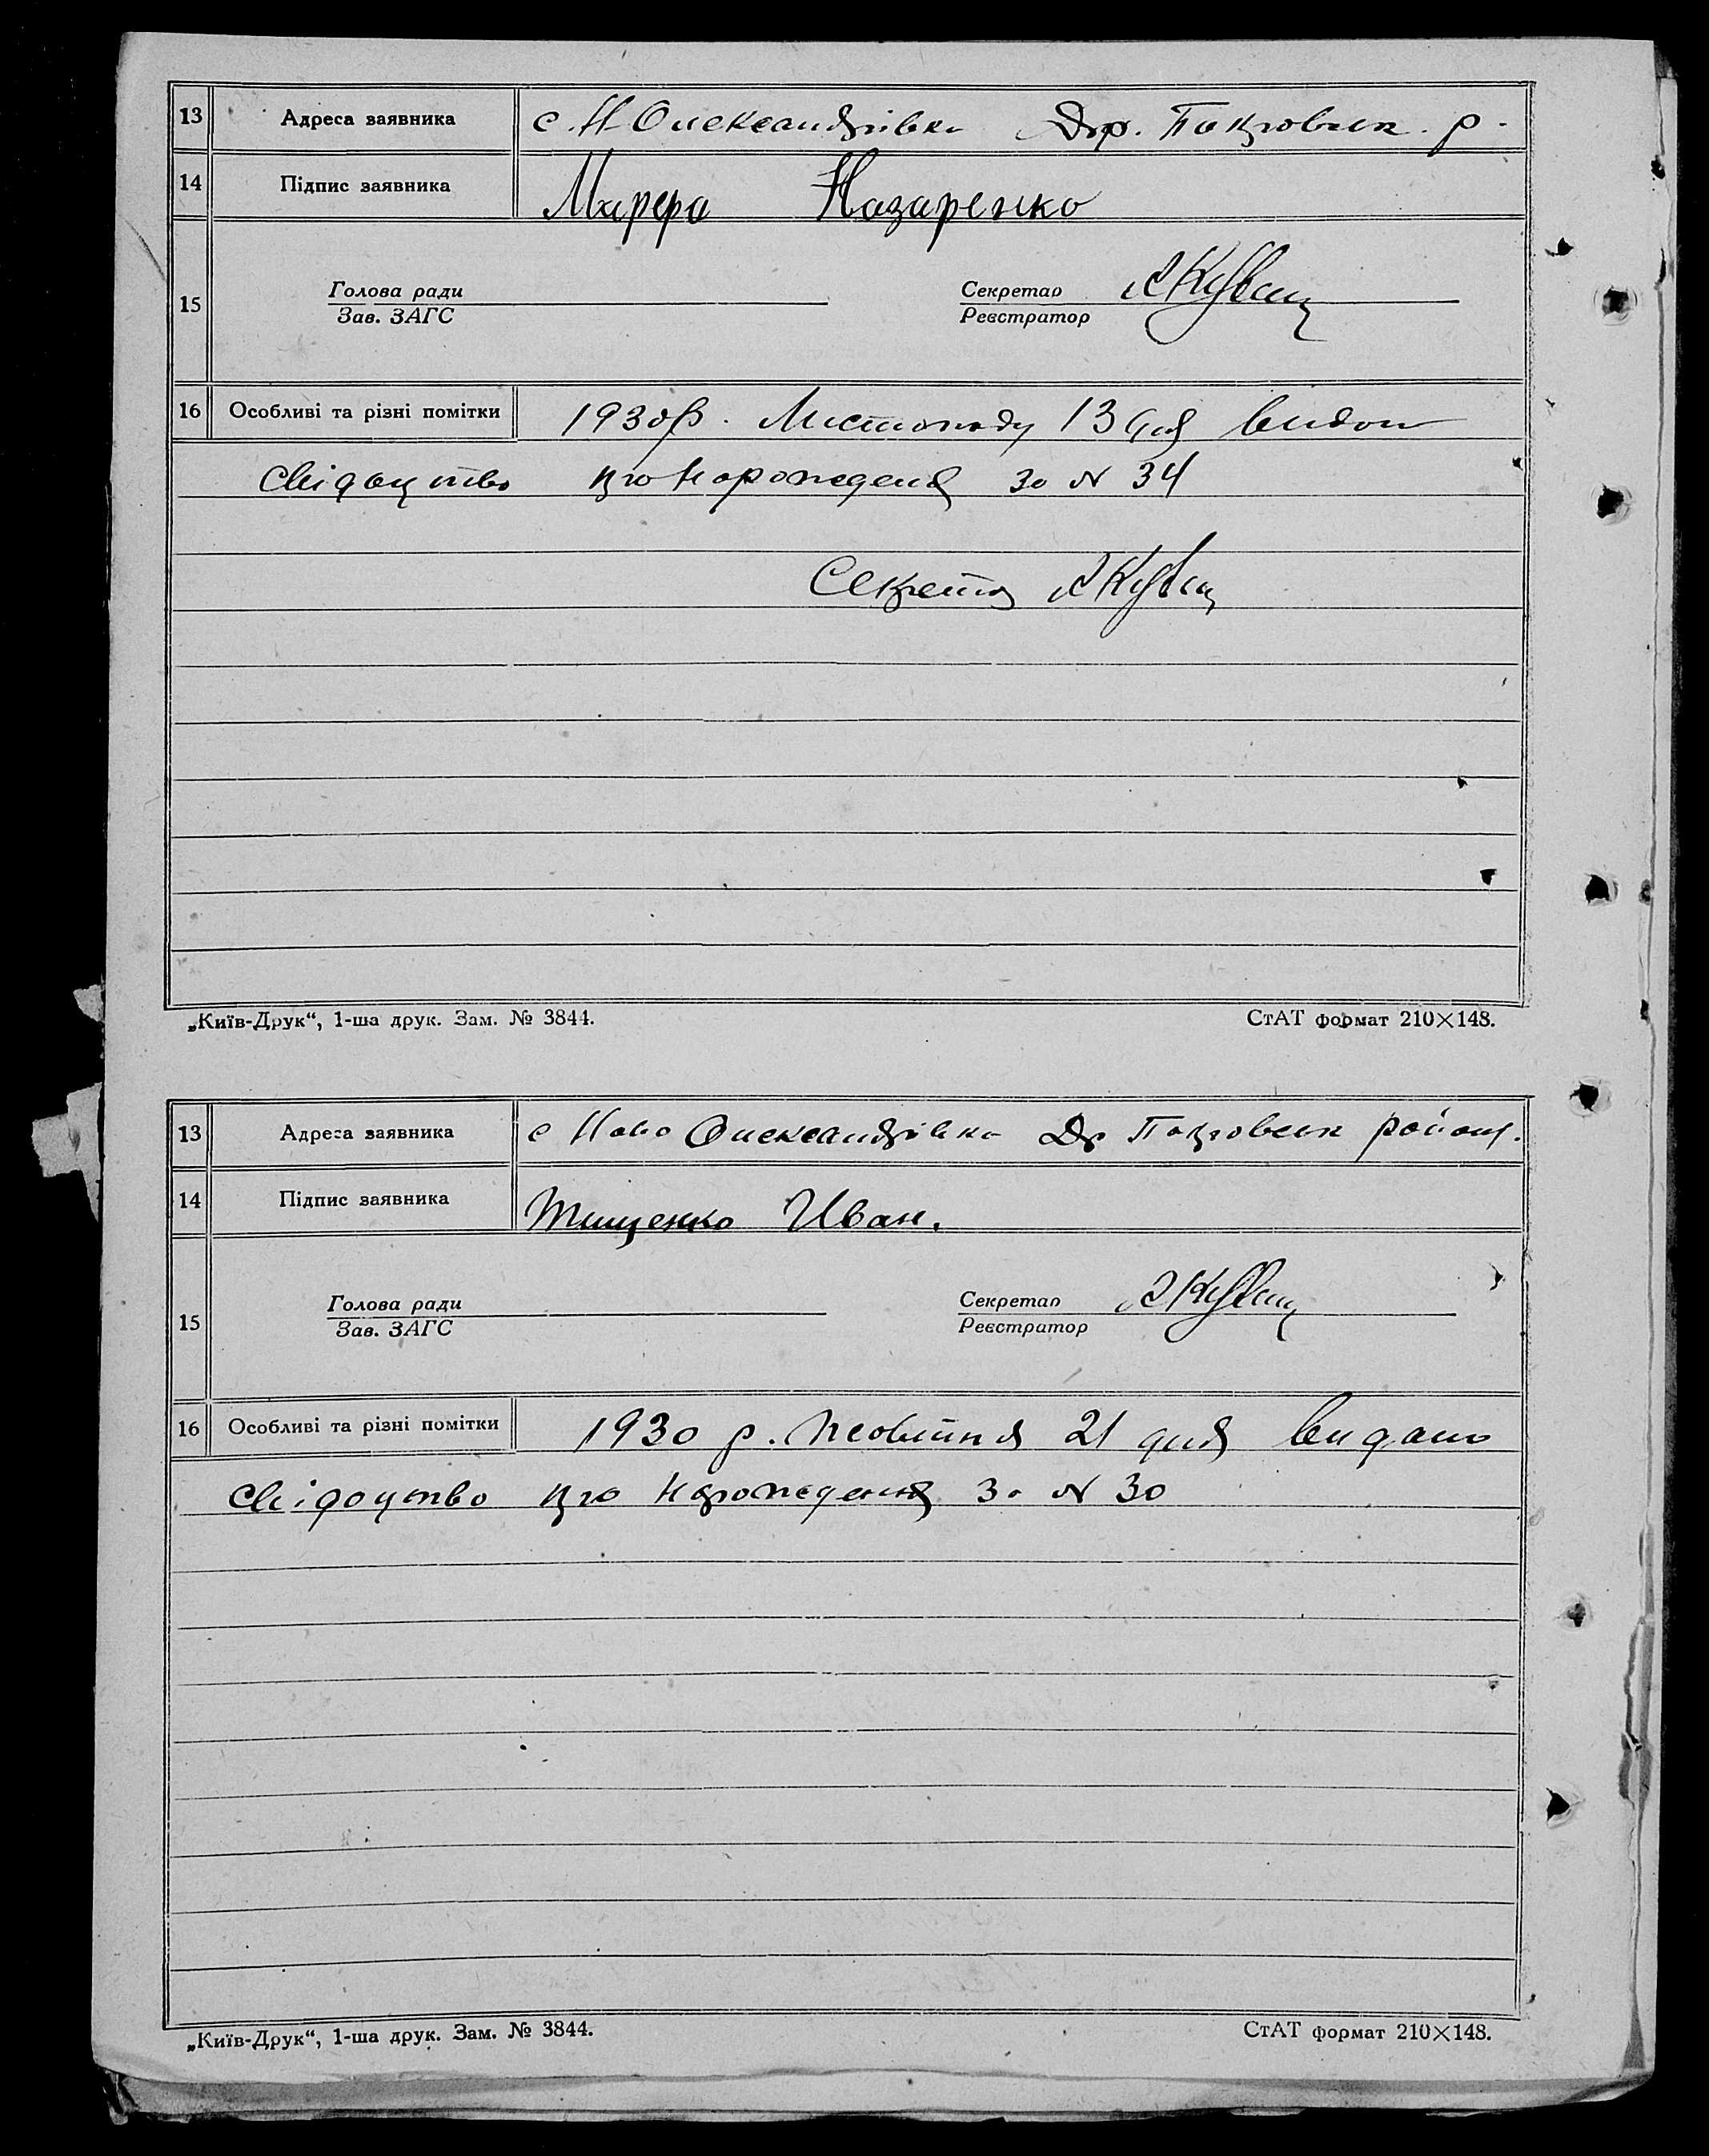 13 Адреса заявника с. Н-Олександрівка Др. Покровськ. р.
14 Підпис заявника Марфа Назаренко
15 Голова ради Секретар
Зав. ЗАГС Реєстратор
16 Особливі та різні помітки 1930 р. Листопаду 13 дня видан
свідоцтво про народження за N 34
Секретар
„Київ-Друк“, 1-ша друк. Зам. № 3844. СтАТ формат 210×148.
13 Адреса заявника с Ново Олександрівка Др Покровськ район.
14 Підпис заявника Тищенко Иван.
15 Голова ради Секретар
Зав. ЗАГС Реєстратор
16 Особливі та різні помітки 1930 р. Жовтня 21 дня видано
свідоцтво про народження за N 30
„Київ-Друк“, 1-ша друк. Зам. № 3844. СтАТ формат 210×148.